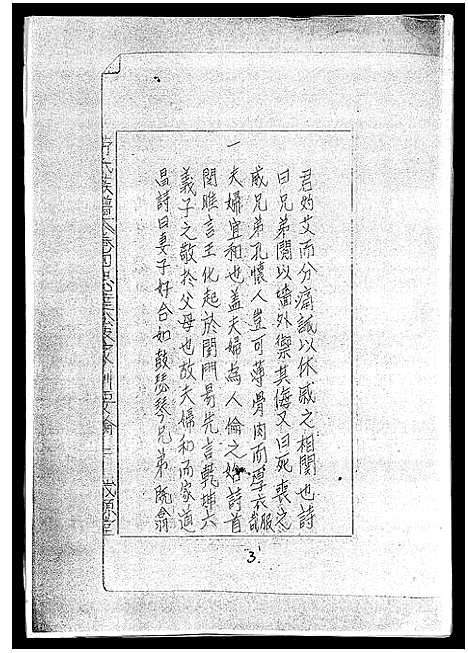 君灼艾而分痛誠以休戚之相關也詩
曰兄弟鬩以墻外禦其侮又曰死喪之
威兄弟孔懷人豈可薄骨肉而厚衣服哉
一夫婦宜和也蓋夫婦為人倫之始詩首
関雎言王化起於閨門易先言乾坤六
義子之敬於父母也故夫婦和而家道
昌詩曰妻子好合如鼓瑟琴兄弟既翕
氏族譜
3